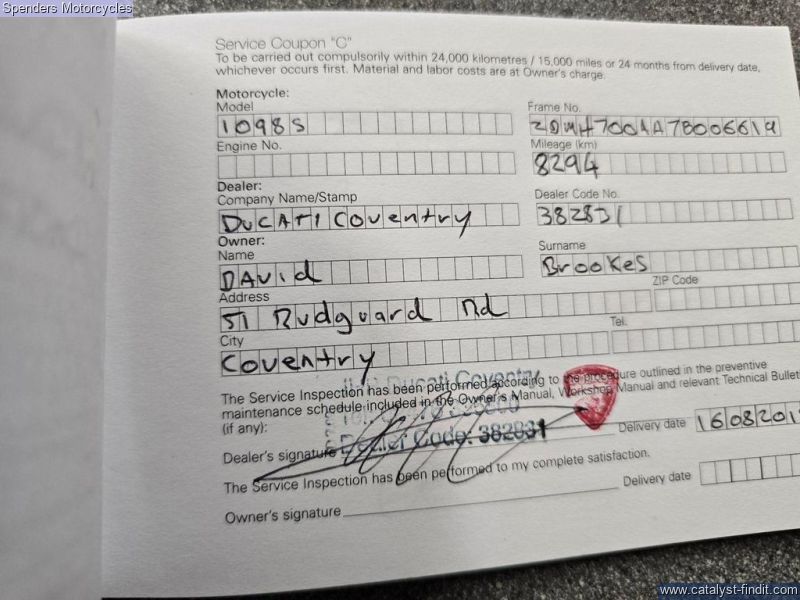 Spenders Motorcycles
Service Coupon "C"
To be carried out compulsorily within 24,000 kilometres / 15,000 miles or 24 months from delivery date,
whichever occurs first. Material and labor costs are at Owner's charge.
Motorcycle:
Model Frame No.
1098S ZDMH700AA7B006619
Engine No. Mileage (km)
8294
Dealer:
Company Name/Stamp Dealer Code No.
Ducati Coventry 382831
Owner:
Name Surname
David Brookes
Address ZIP Code
51 Rudguard Rd
City Tel.
Coventry
The Service Inspection has been performed according to the procedure outlined in the preventive
maintenance schedule included in the Owner's Manual, Workshop Manual and relevant Technical Bullet
(if any):
Ducati Coventry
Dealer Code: 382831
Dealer's signature Delivery date 1608201
The Service Inspection has been performed to my complete satisfaction.
Owner's signature Delivery date
www.catalyst-findit.com